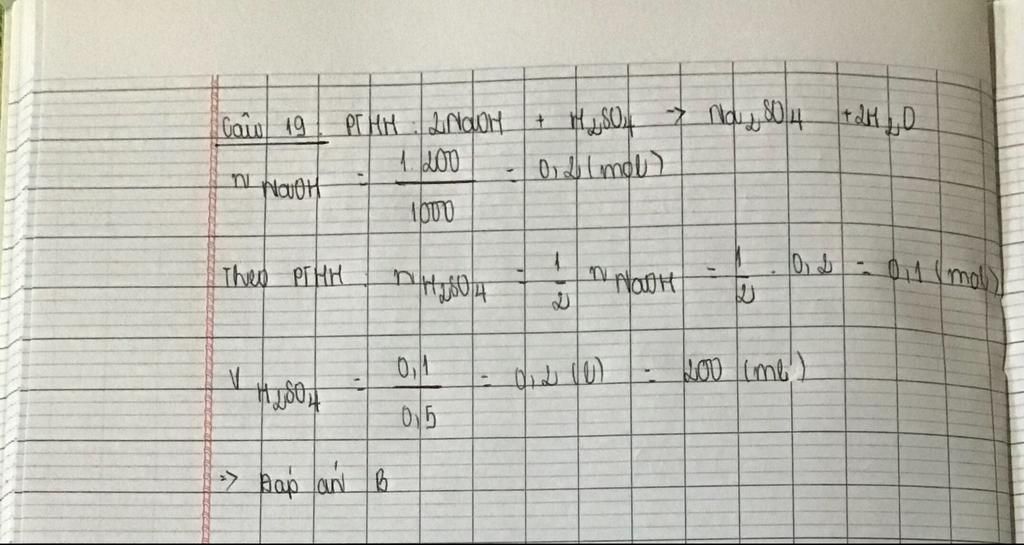 Câu 19: PTHH: 2NaOH + H₂SO₄ → Na₂SO₄ + 2H₂O
n NaOH = 1.200/1000 = 0,2 (mol)
Theo PTHH: n H₂SO₄ = 1/2 n NaOH = 1/2 . 0,2 = 0,1 (mol)
V H₂SO₄ = 0,1/0,5 = 0,2 (l) = 200 (ml)
=> Đáp án B